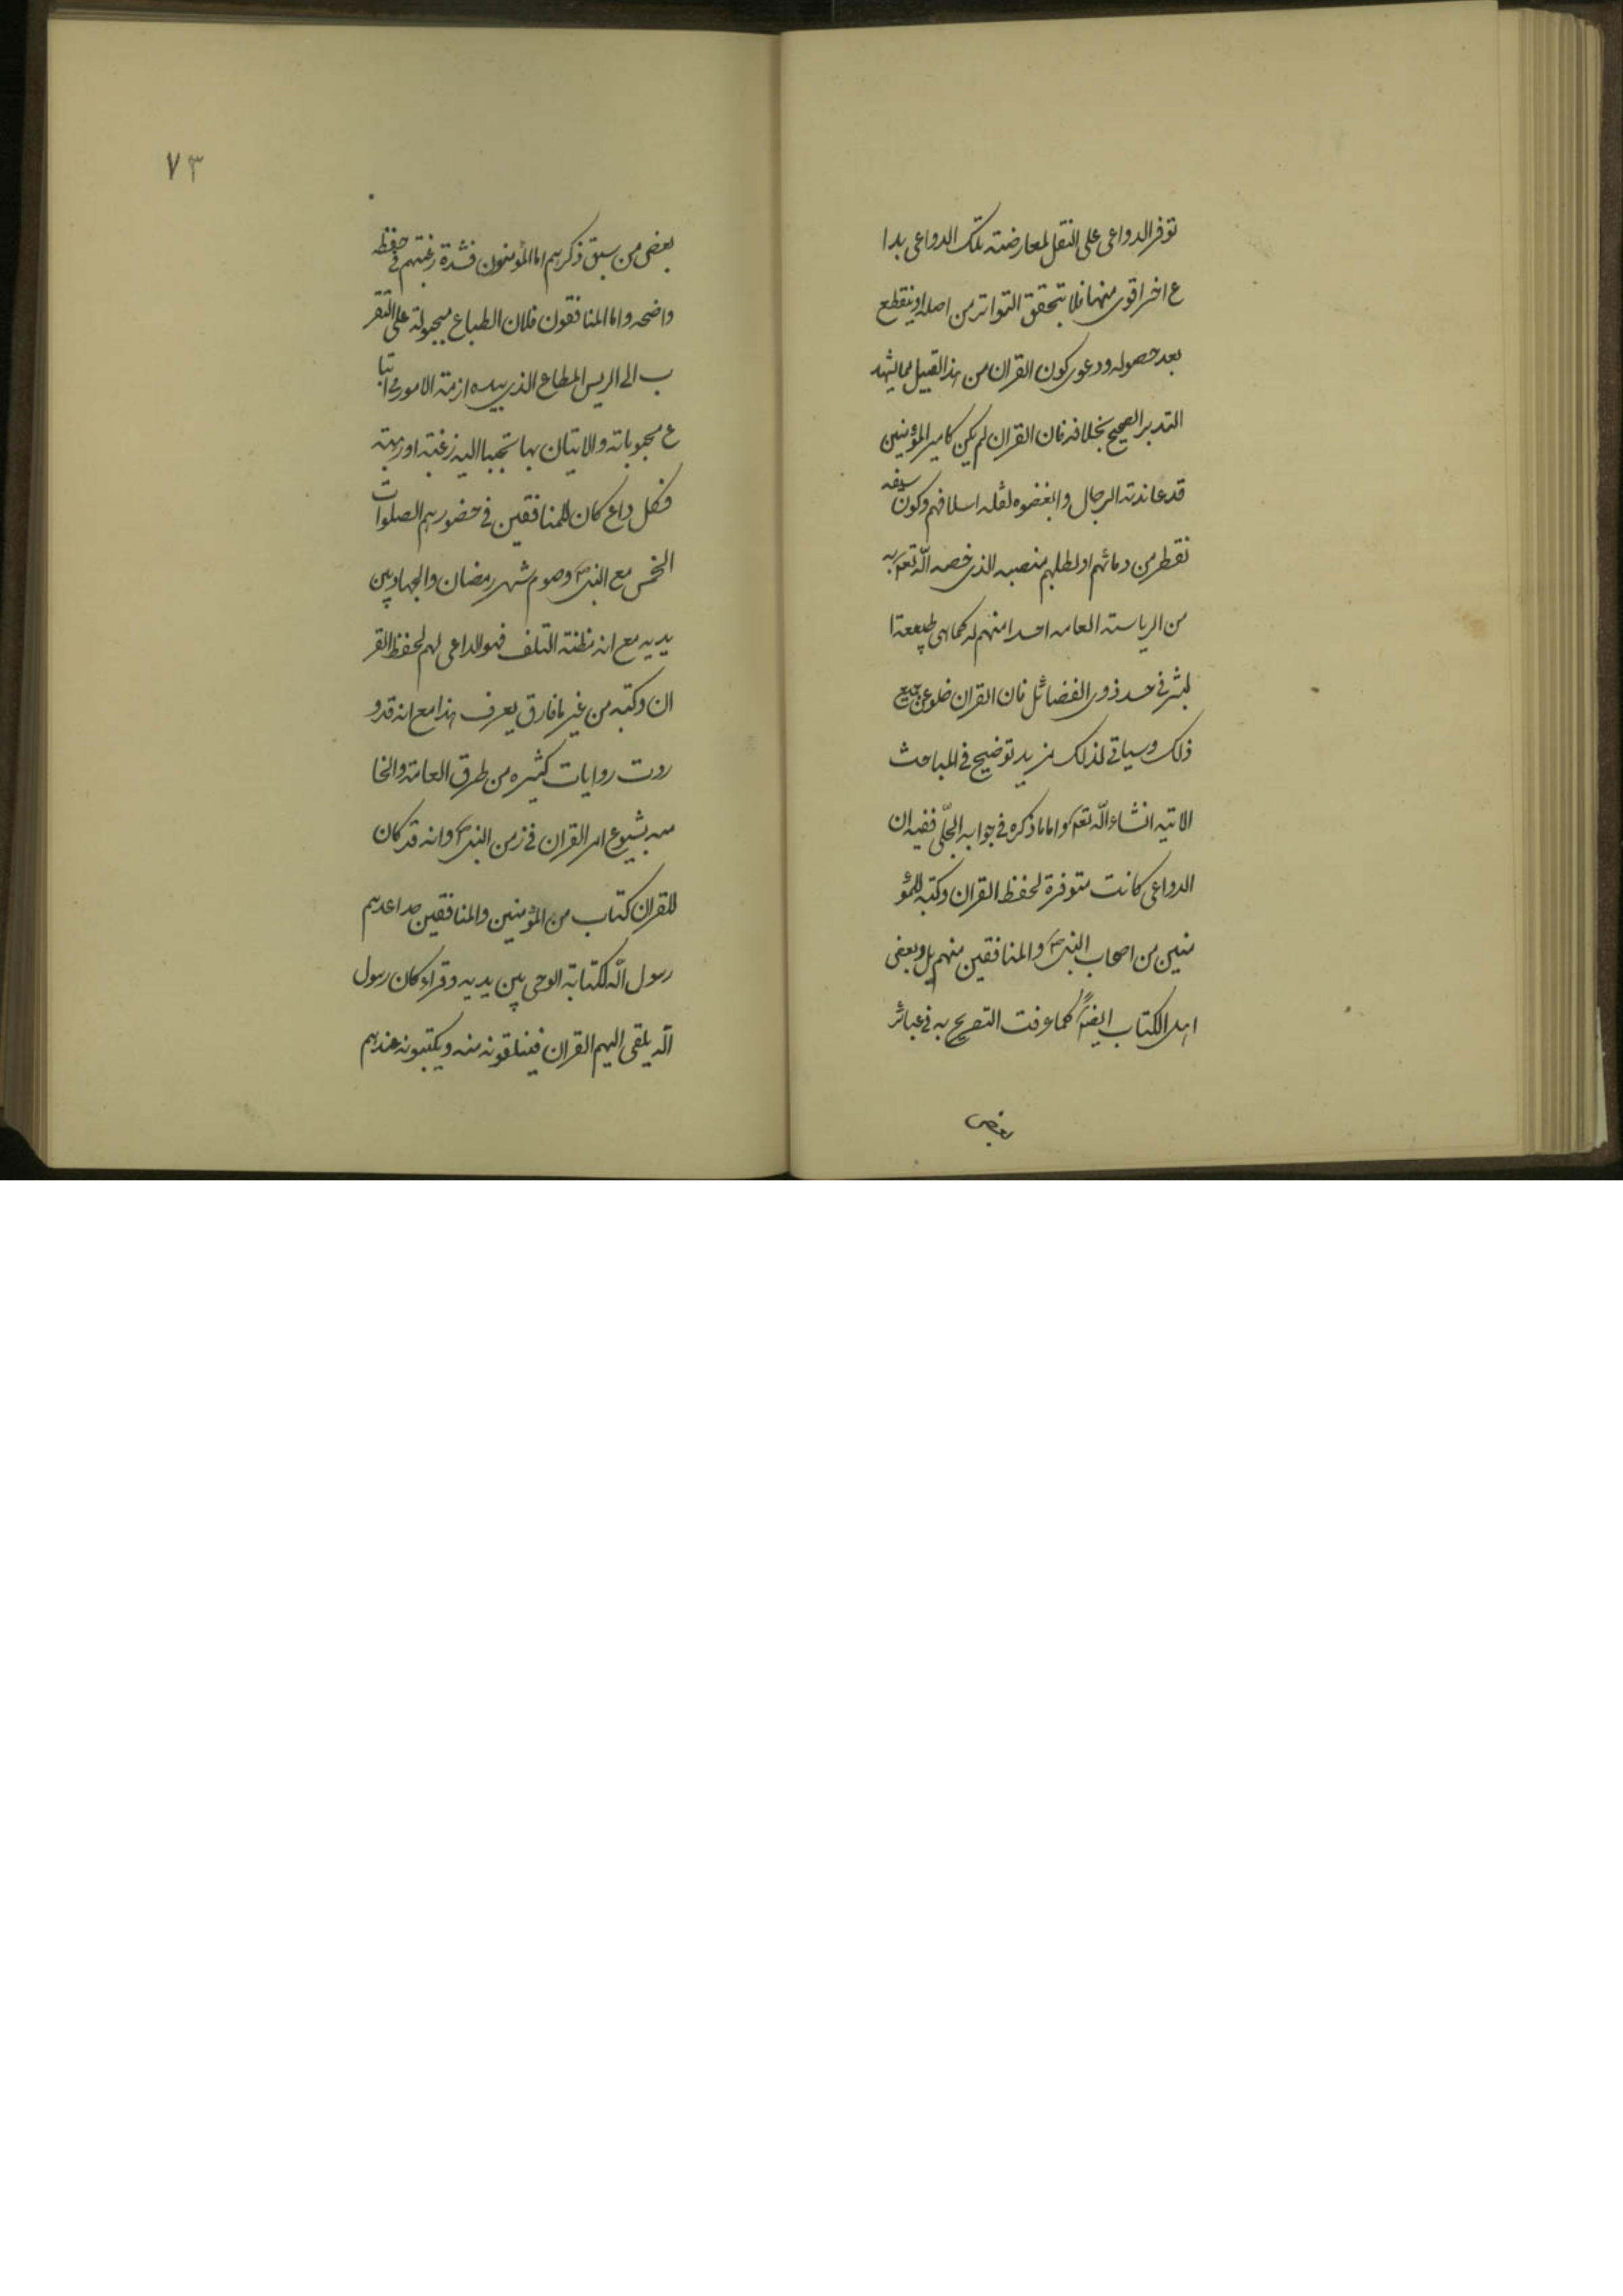 توفر الدواعى على النقل لمعارضته تلك الدواعى بدا
ع اخر اقوى منها فلا يتحقق التواتر من اصله او ينقطع
بعد حصوله ودعوى كون القران من هذا القبيل مما يشهد
التدبر الصحيح بخلافه فان القران لم يكن كامير المؤمنين
قد عاندته الرجال وابغضوه لقتله اسلافهم وكون سيفه
تقطر من دمائهم او لطلبهم منصبه الذى خصه الله تعم به
من الرياسته العامه احدا منهم له كما هى طبيعة ا
لبشر فى حسد ذوى الفضائل فان القران خلو عن جميع
ذلك وسياتى لذلك مزيد توضيح فى المباحث
الاتيه انشاء الله تعم واما ما ذكره فى جوابه الحلّى ففيه ان
الدواعى كانت متوفرة لحفظ القران وكتبه للمؤ
منين من اصحاب النبى ص والمنافقين منهم بل وبعض
اهل الكتاب ايضاً كما عرفت التصريح به فى عبائر
بعض
٧٣
بعض من سبق ذكرهم اما المؤمنون فشدة رغبتهم فى حفظه
واضحه واما المنافقون فلان الطباع مجبولة على التقر
ب الى الريس المطاع الذى بيده ازمة الامور فى اتبا
ع محبوباته والاتيان بها تحببا اليه رغبته او رهبته
فكل داع كان للمنافقين فى حضورهم الصلوات
الخمس مع النبى ص وصوم شهر رمضان والجهاد بين
يديه مع انه مظنته التلف فهو الداعى لهم لحفظ القر
ان وكتبه من غير ما فارق يعرف هذا مع انه قد و
ردت روايات كثيره من طرق العامة والخا
صه بشيوع امر القران فى زمن النبى ص وانه قد كان
للقران كتاب من المؤمنين والمنافقين اعدهم
رسول الله لكتابة الوحى بين يديه وقراء كان رسول
الله يلقى اليهم القران فيتلقونه منه ويكتبونه عندهم